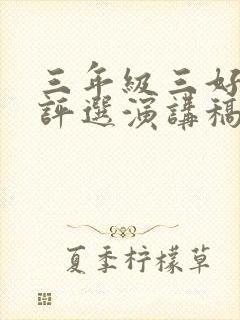 三年級三好
評選演講稿
夏季柠檬草